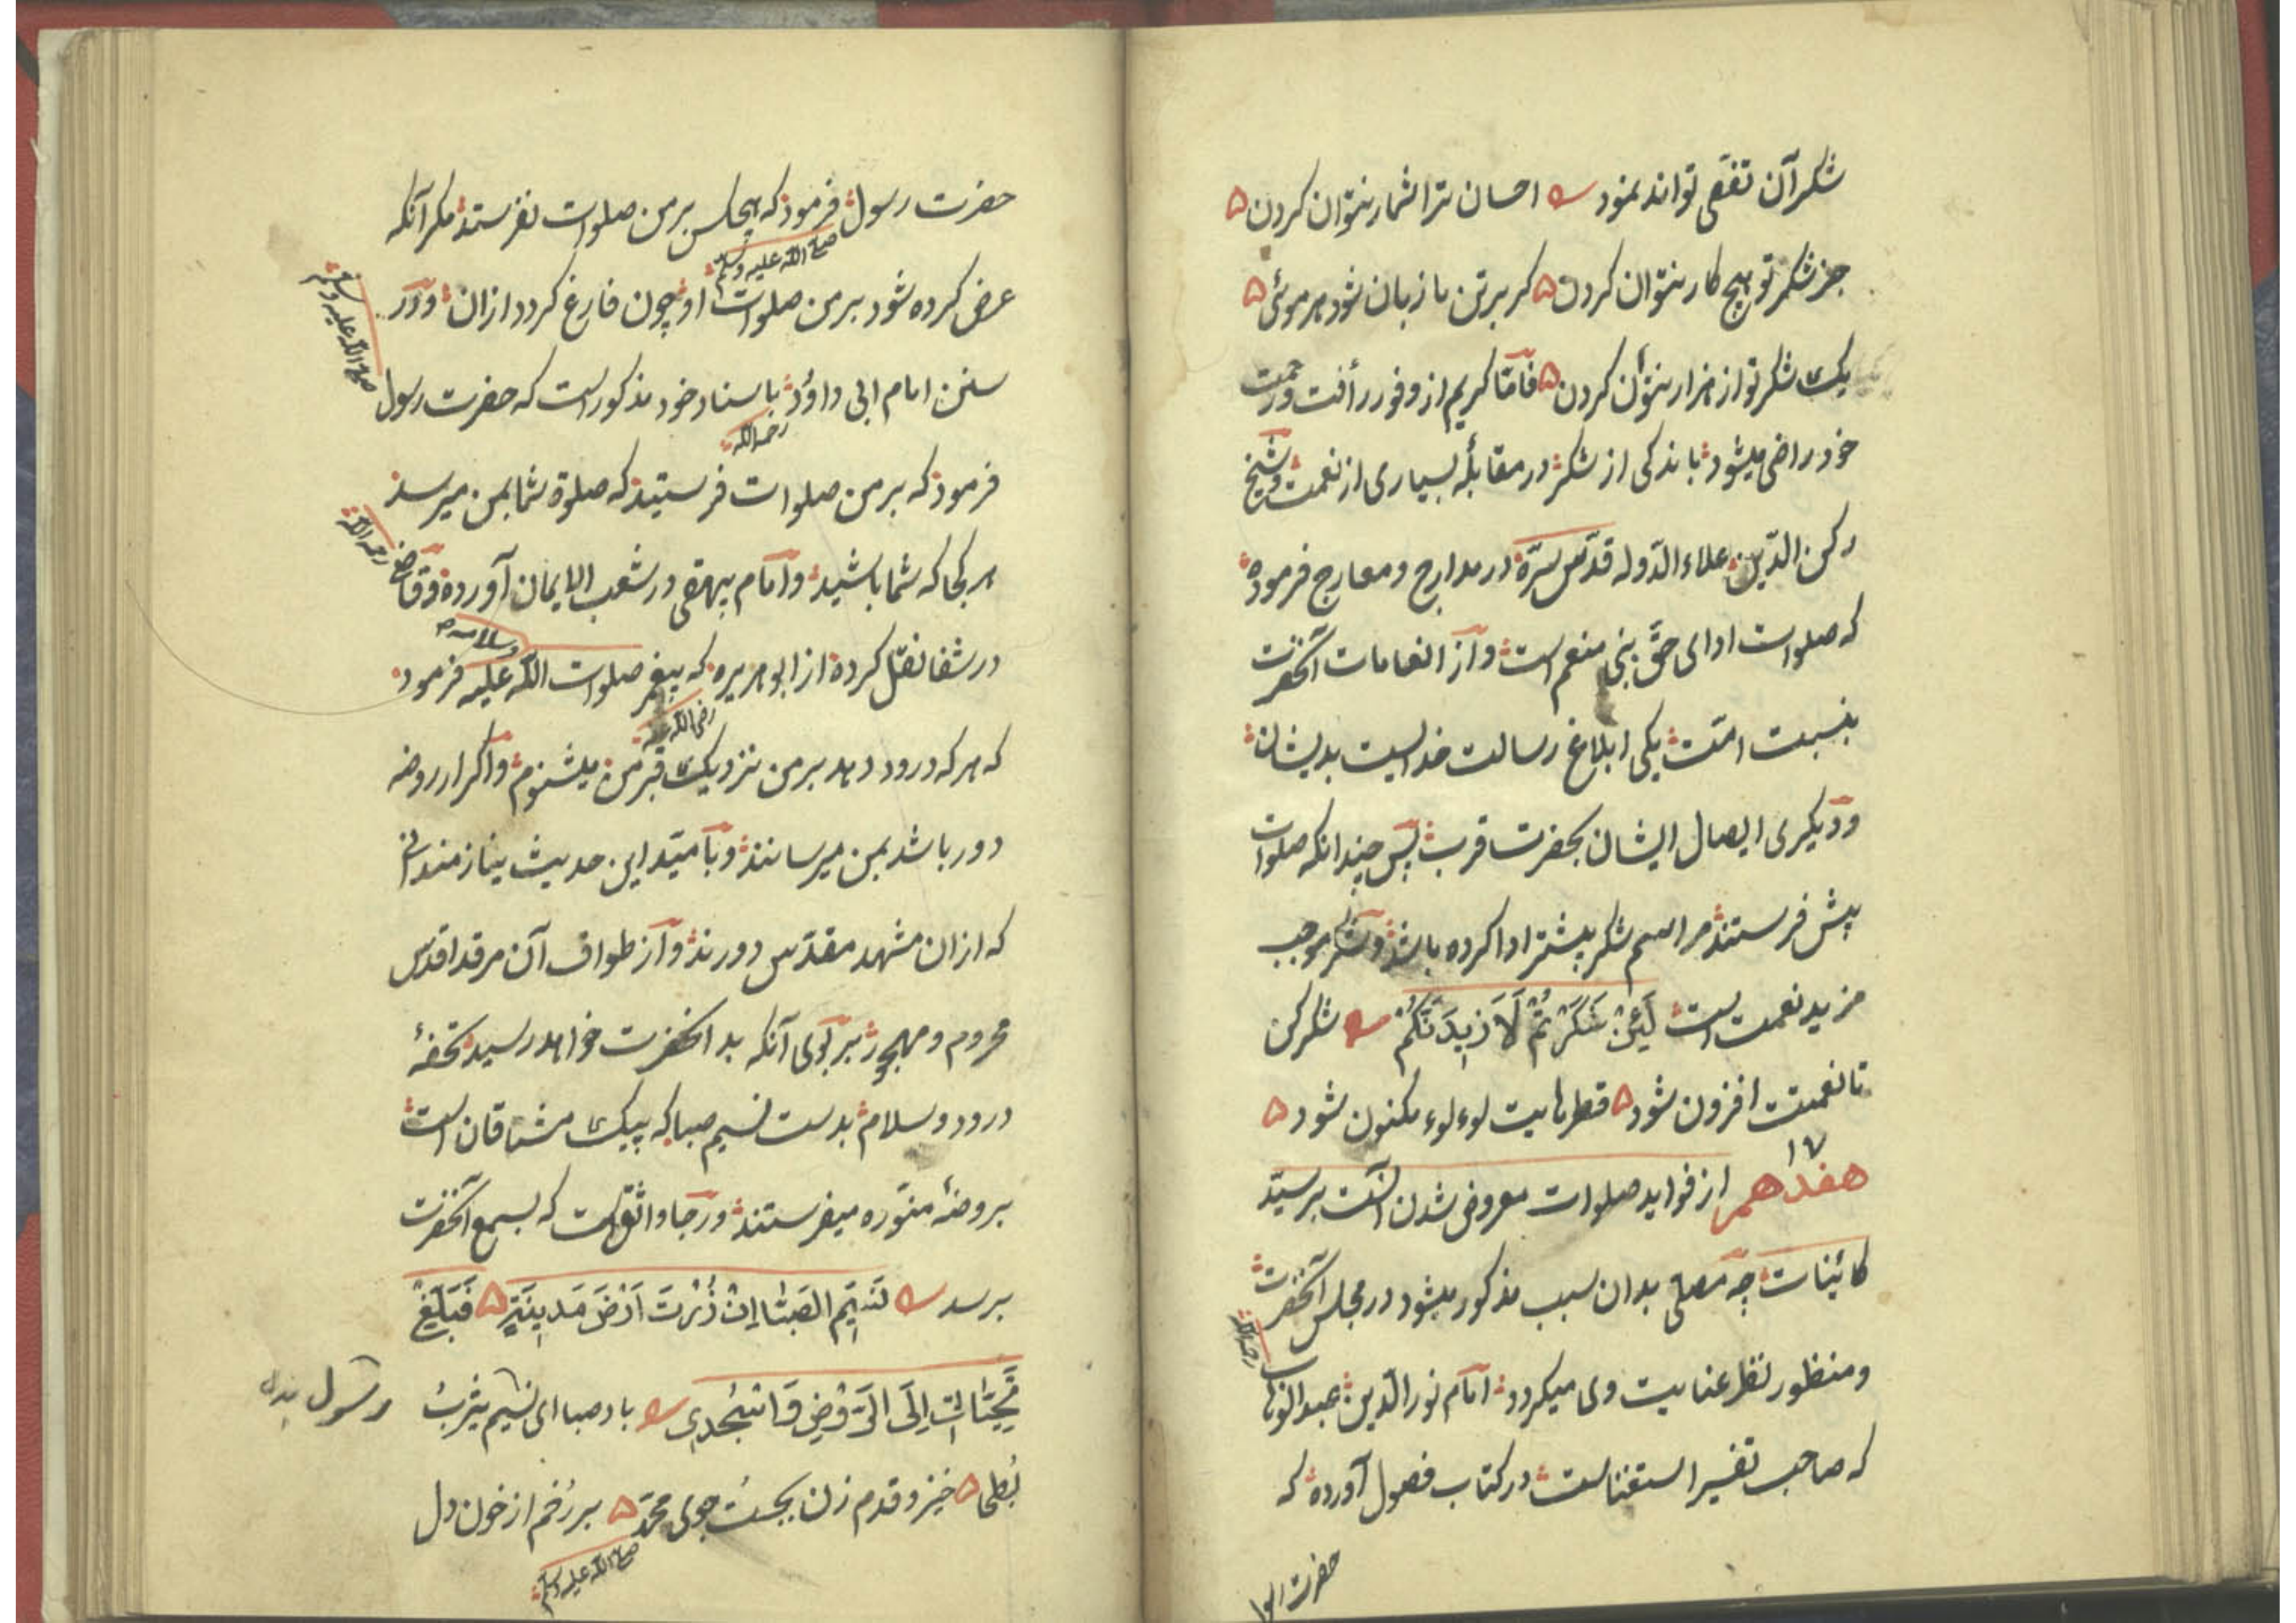 شکر آن تفقی تواند نمود احسان ترا شمار نتوان کردن
جز شکر تو هیچ کار نتوان کردن کر بر تن ما زبان شود هر موئی
یک شکر تو از هزار نتوان کردن فامّا کریم از وفور رأفت و رحمت
خود راضی میشود باندکی از شکر در مقابلهٔ بسیاری از نعمت و شیخ
رکن الدّین علاء الدّوله قدّس سرّه در مدارج و معارج فرموده
که صلوات ادای حقّ بنی منعم است و از انعامات آنحضرت
بنسبت امّت یکی ابلاغ رسالت خداست بدیشان
و دیکری ایصال ایشان بحضرت قربت پس چندانکه صلوات
پیش فرستند مراسم شکر بیشتر ادا کرده باشند و شکر موجب
مزید نعمت است لَئِنْ شَكَرْتُمْ لَاَزِيدَنَّكُمْ شکر کن
تا نعمتت افزون شود قطرهایت لوءلوء مکنون شود
۱۷
هفدهم از فواید صلوات معروض شدن آنست بر سیّد
کائینات چه مصلی بدان سبب مذکور میشود در مجلس آنحضرت
و منظور نظر عنایت وی میکردد امام نور الدّین عبد الوهاب
رحمه الله
که صاحب تفسیر استغناست در کتاب فصول آورده که
حضرت
حضرت رسول فرمود که هیچکس بر من صلوات نفرستد مکر آنکه
صلی الله علیه وسلم
عرض کرده شود بر من صلوات او چون فارغ کردد ازان و در
سنن امام ابی داؤد باسناد خود مذکور است که حضرت رسول
صلی الله علیه وسلم
رحمه الله
فرمود که بر من صلوات فرستید که صلوة شما بمن میرسد
هر کجا که شما باشید و امام بیهقی در شعب الایمان آورده و قاضی
رحمه الله
در شفا نقل کرده از ابو هریره که پیغمبر صلوات الله علیه فرمود
وسلامه
رضی الله عنه
که هر که درود دهد بر من نزدیک قبر من میشنوم و اکر از روضه
دور باشد بمن میرسانند و بامّید این حدیث نیازمندانی
که ازان مشهد مقدّس دورند و از طواف آن مرقد اقدس
محروم و مهجور بر بوی آنکه بدانحضرت خواهد رسید تحفهٔ
درود و سلام بدست نسیم صبا که پیک مشتاقان است
بروضهٔ منوّره میفرستند و رجا واثق است که بسمع آنحضرت
برسد نَسِيمَ الصَّبَا اِنْ زُرْتَ اَرْضَ مَدِينَةٍ فَبَلِّغْ
تَحِيَّاتِي اِلَى الرَّوْضِ وَاسْجُدِي باد صبا ای نسیم یثرب
بطحا خیز و قدم زن بجست جوی محمّد بر رخم از خون دل
صلی الله علیه وسلم